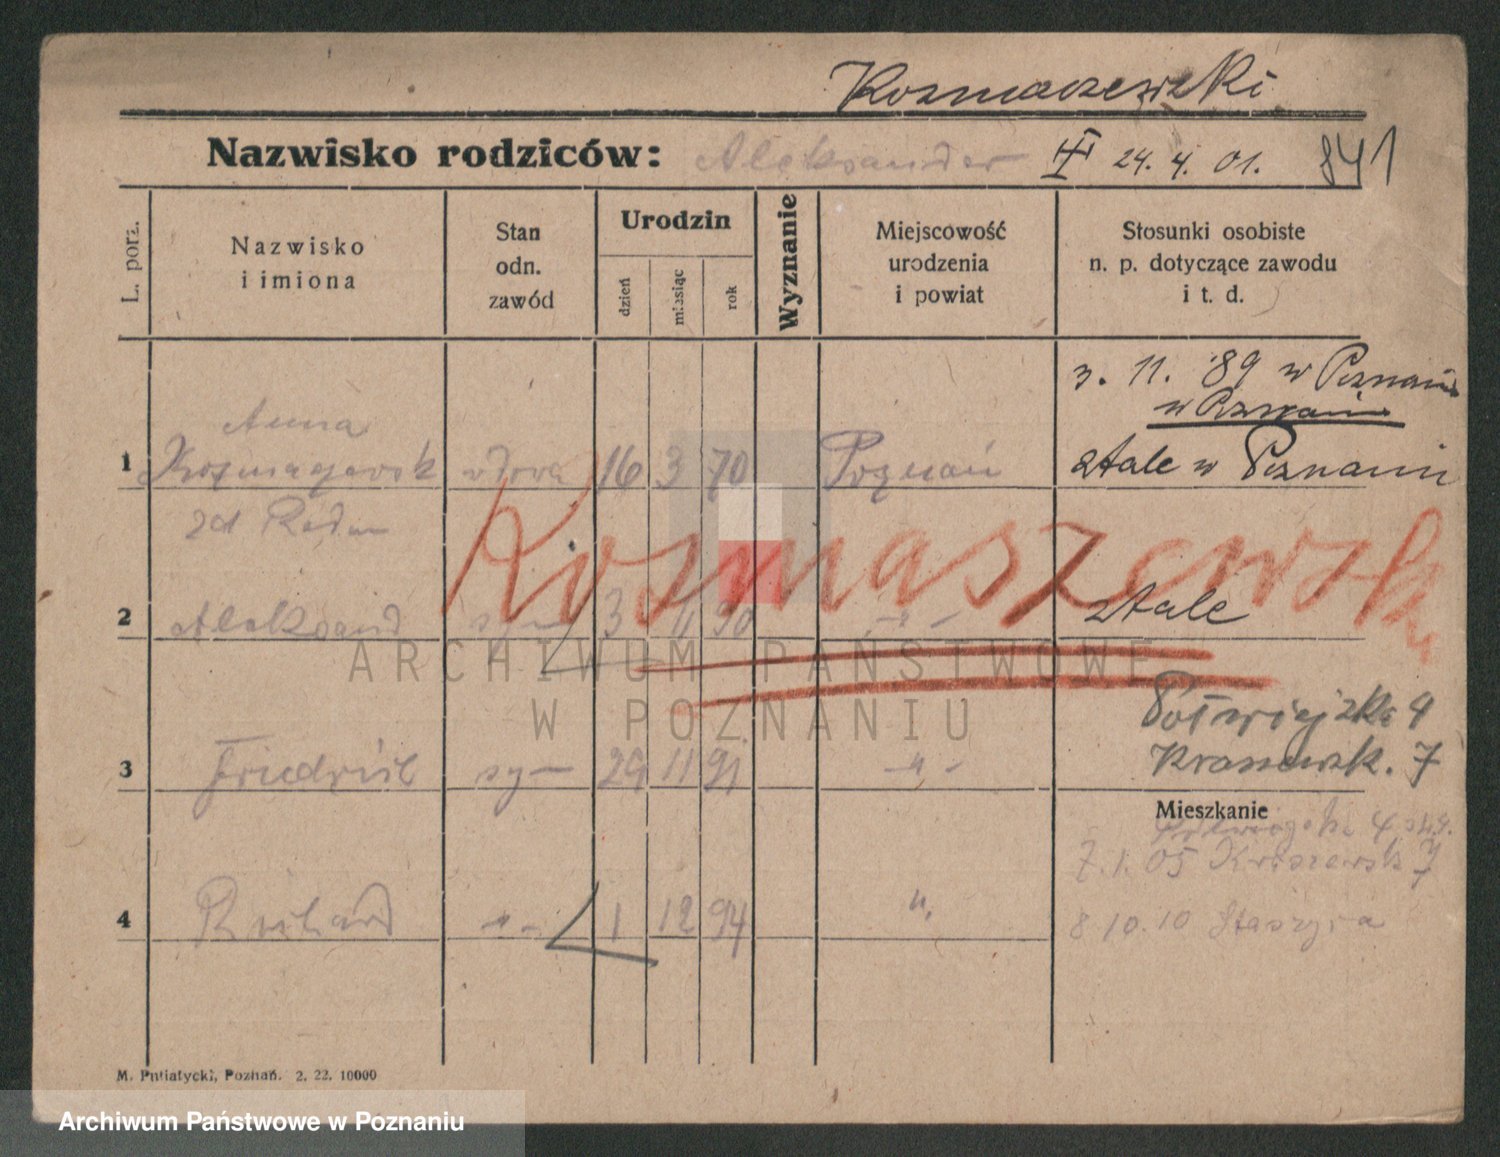 Kozmaczewski
Nazwisko rodziców: Aleksander 24. 4. 01. 841
L. porz.
Nazwisko i imiona
Stan odn. zawód
Urodzin
dzień
miesiąc
rok
Wyznanie
Miejscowość urodzenia i powiat
Stosunki osobiste n. p. dotyczące zawodu i t. d.
3. 11. 89 w Poznaniu
w Poznaniu
Anna
1 wdowa 16 3 70 Poznań stale w Poznaniu
Kosmaszewski
2 Aleksand 3 11 90 -"- stale
Półwiejska 4
3 Friedrich sy- 29 11 91 -"- Kraszewsk. 7
Mieszkanie
Półwiejska 4
7.1.05 Kraszewsk 7
4 Richard -"- 1 12 94 " 8 10.10 Staszyca
ARCHIWUM PAŃSTWOWE
W POZNANIU
M. Putiatycki, Poznań. 2. 22. 10000
Archiwum Państwowe w Poznaniu